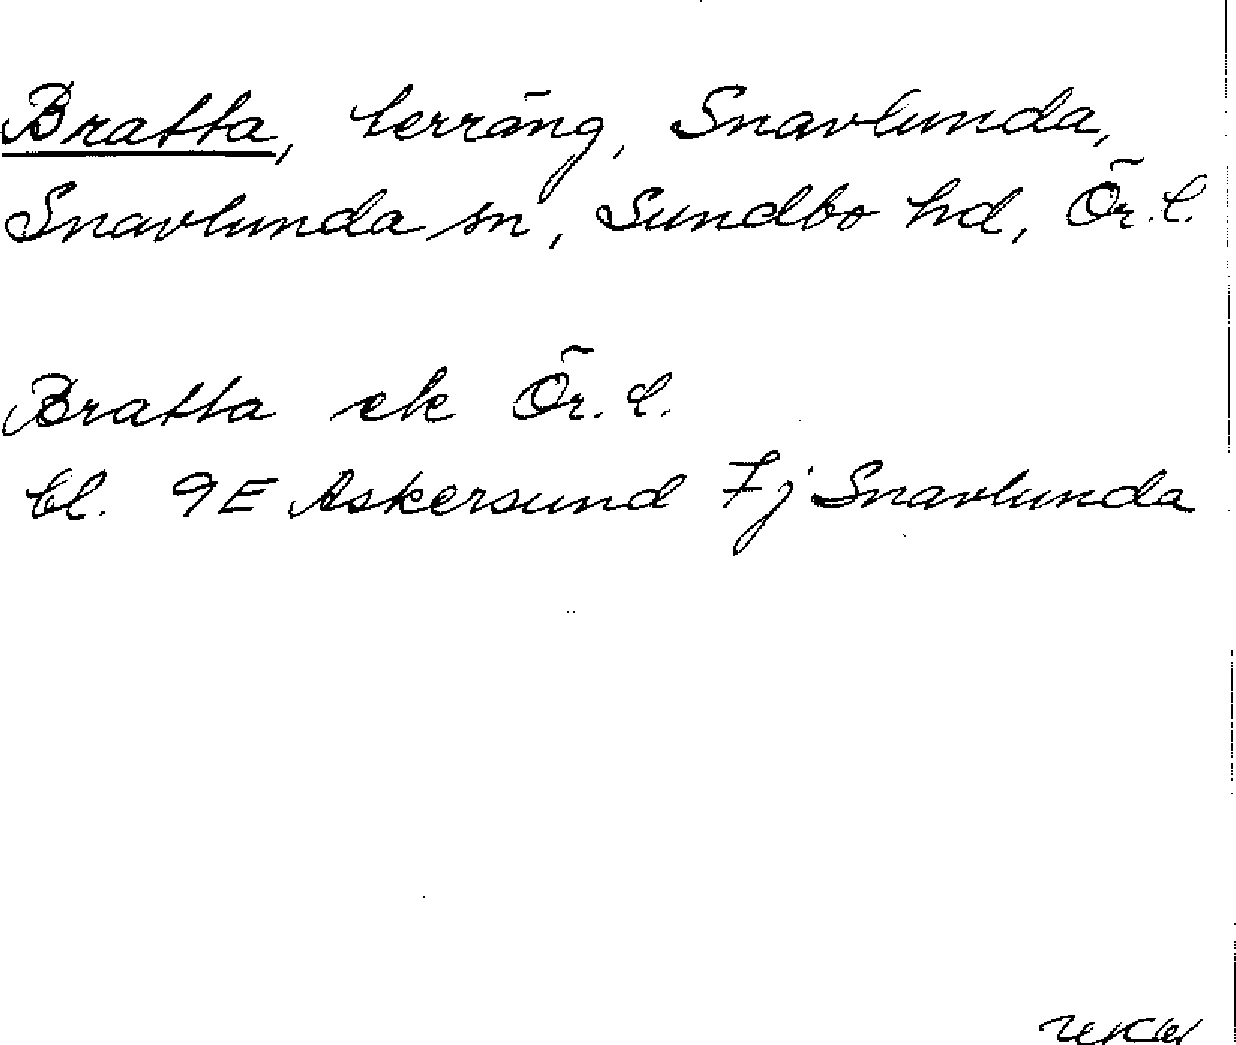 Bratta, terräng, Snavlunda,
Snavlunda sn, Sundbo hd, Ör. l.
Bratta ek Ör. l.
bl. 9E Askersund 7j Snavlunda